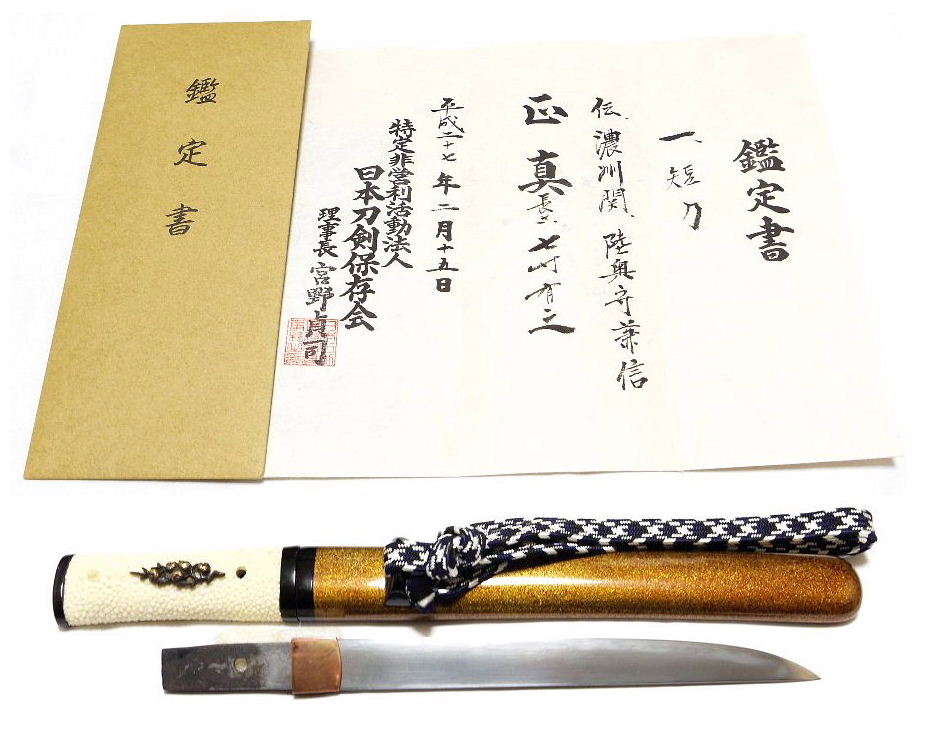 鑑定書
一、短刀
伝、濃州関、陸奥守兼信
正真 長サ 七寸有之
平成二十七年二月十五日
特定非営利活動法人
日本刀剣保存会
理事長 宮野貞司
鑑定書